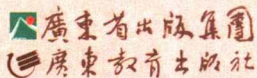 廣東省出版集團
廣東教育出版社